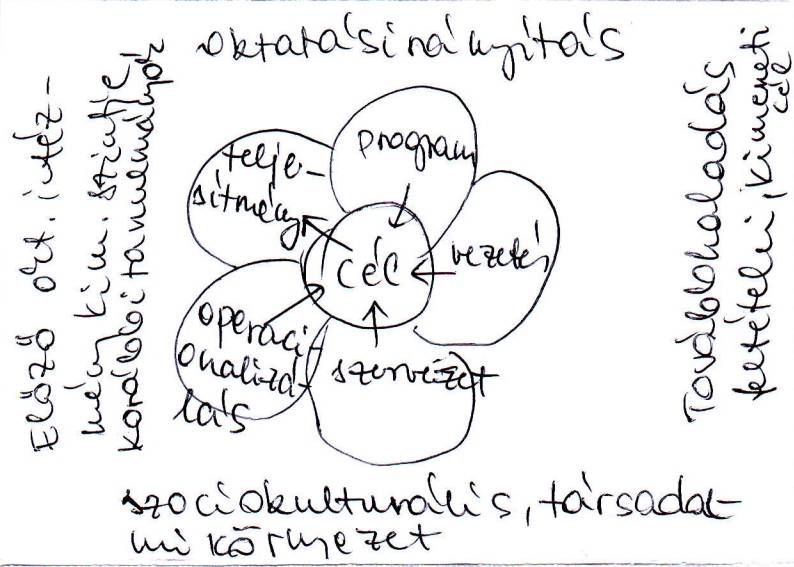 oktatásirányítás
Előző okt. intéz-
mény kim. szintje,
korábbi tanulmányok
telje-
sítmény
program
cél
vezetés
operaci-
onalizá-
lás
szervezet
Továbbhaladás
feltételei, kimeneti
cél
szociokulturális, társadal-
mi környezet